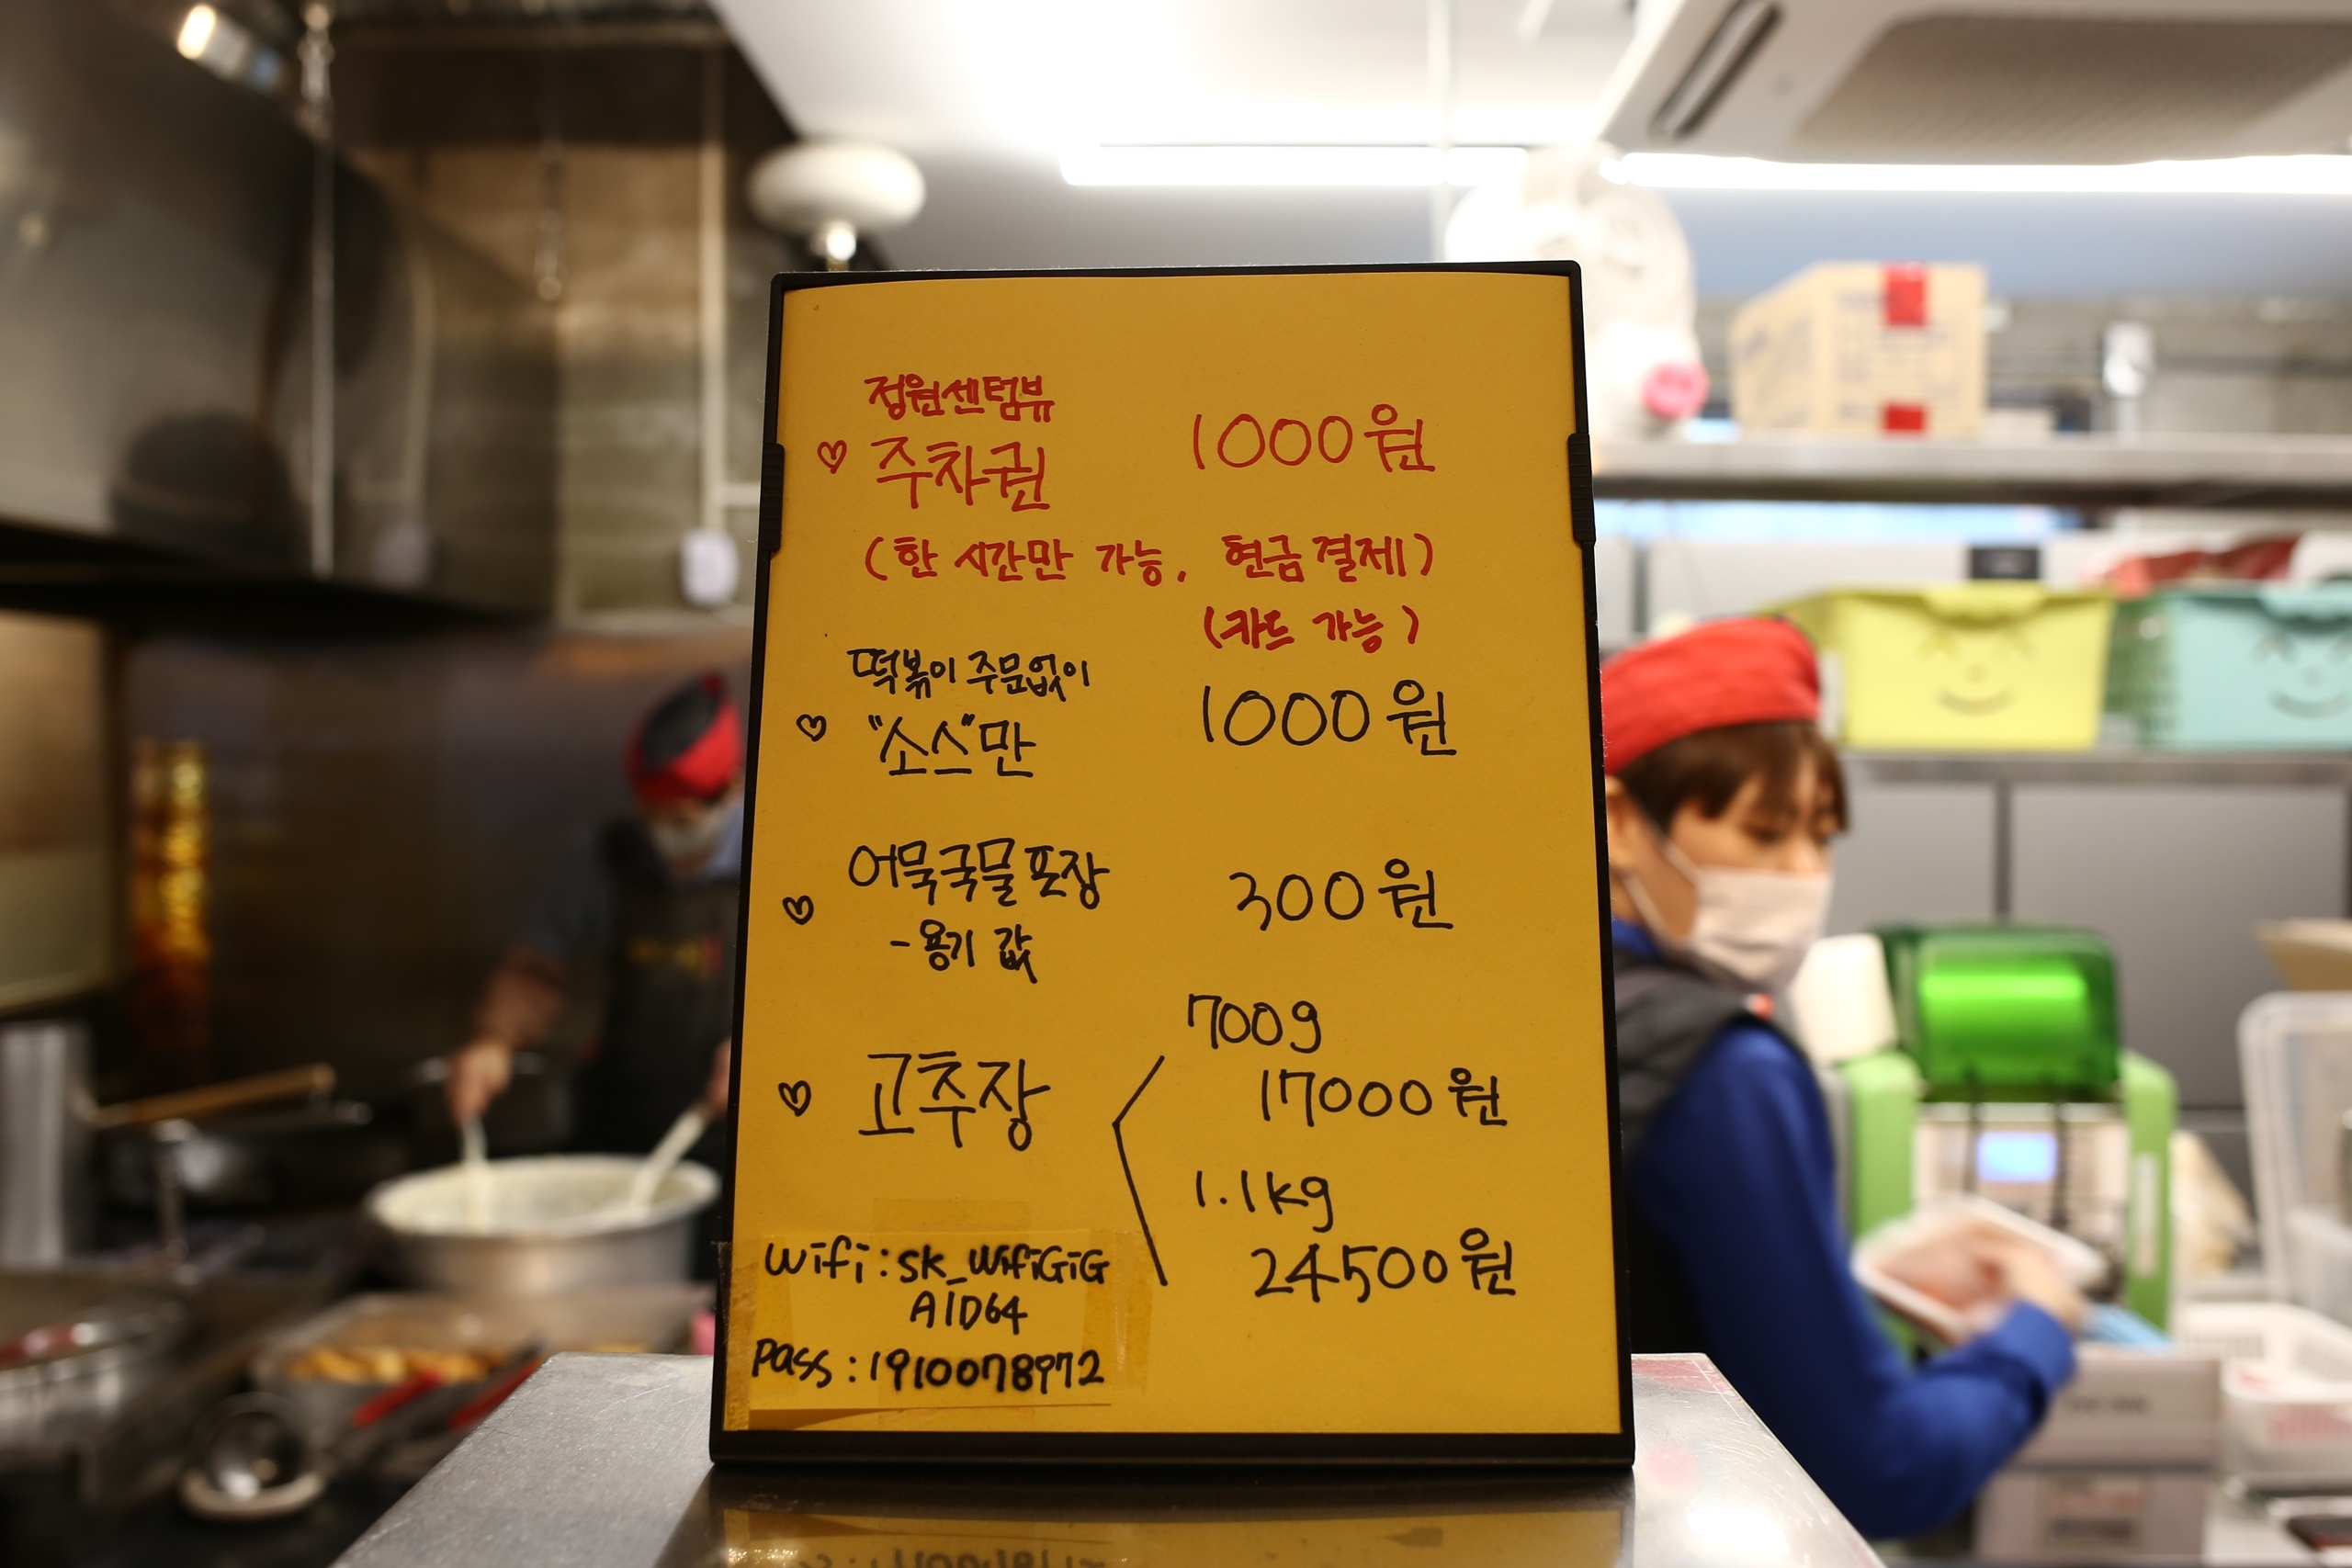 정원센텀뷰
♡ 주차권 1000원
(한 시간만 가능, 현금결제)
(카드 가능)
떡볶이 주문없이
♡ "소스"만 1000원
♡ 어묵국물포장 300원
-용기 값
♡ 고추장
700g
17000원
1.1kg
24500원
wifi : sk_WifiGiG
A1D64
Pass : 1910078972